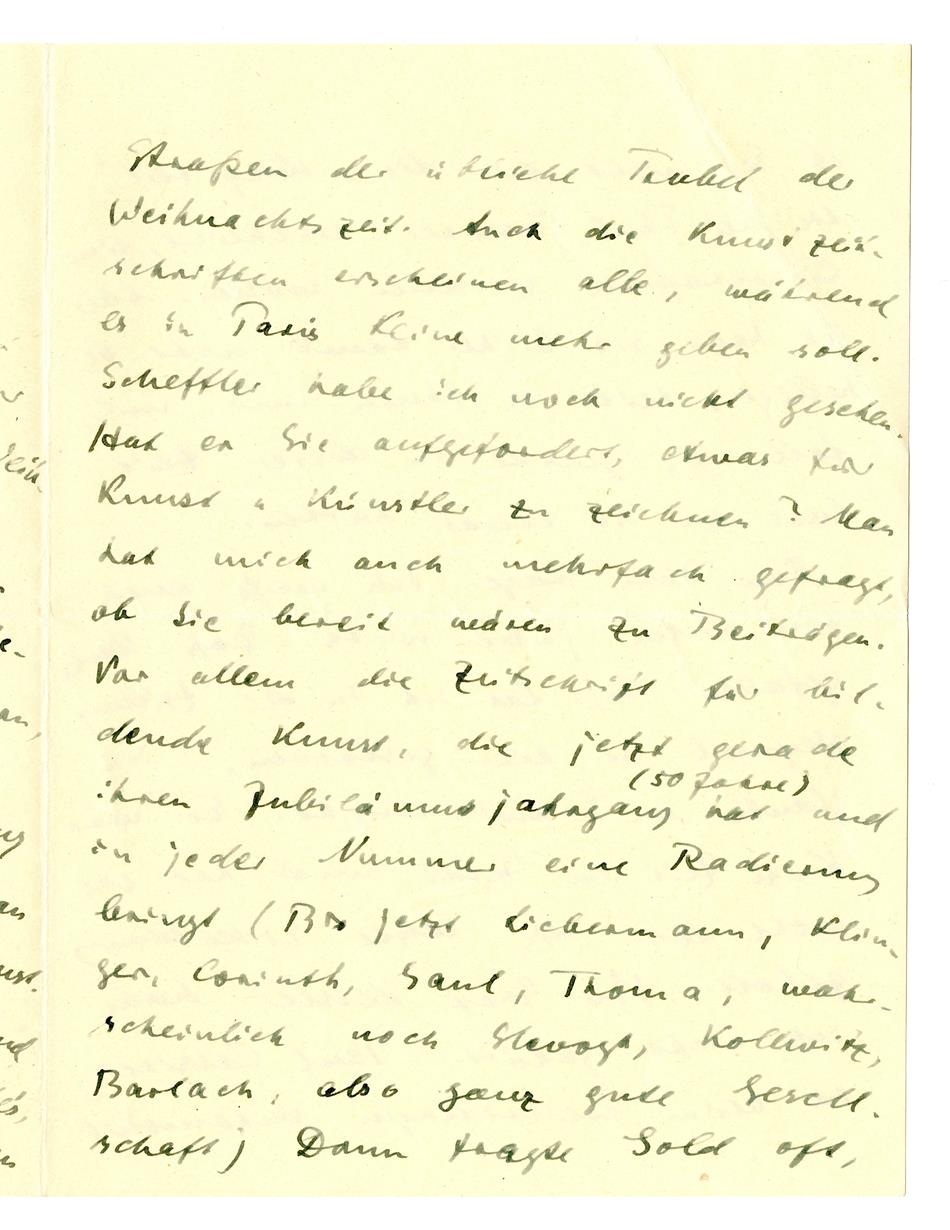 Straßen der übliche Trubel der
Weihnachtszeit. Auch die Kunstzeit-
schriften erscheinen alle, während
es in Paris keine mehr geben soll.
Scheffler habe ich noch nicht gesehen.
Hat er Sie aufgefordert, etwas für
Kunst u Künstler zu zeichnen? Man
hat mich auch mehrfach gefragt,
ob Sie bereit wären zu Beiträgen.
Vor allem die Zeitschrift für bil-
dende Kunst, die jetzt gerade
(50 Jahre)
ihren Jubiläumsjahrgang hat und
in jeder Nummer eine Radierung
bringt (Bis jetzt Liebermann, Klin-
ger, Corinth, Gaul, Thoma, wahr-
scheinlich noch Slevogt, Kollwitz,
Barlach, also ganz gute Gesell-
schaft) Dann fragte Gold oft,